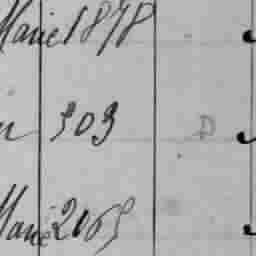 Marie 1878
303 D
Marie 2065